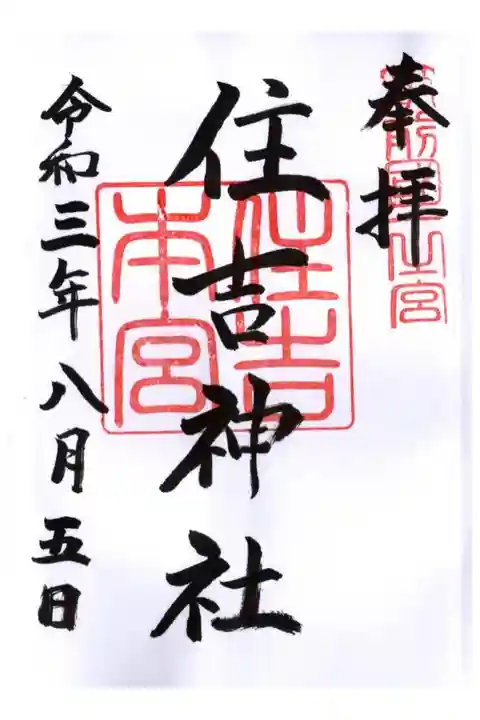 奉拝
筑前国一之宮
住吉神社
住吉本宮
令和三年八月五日